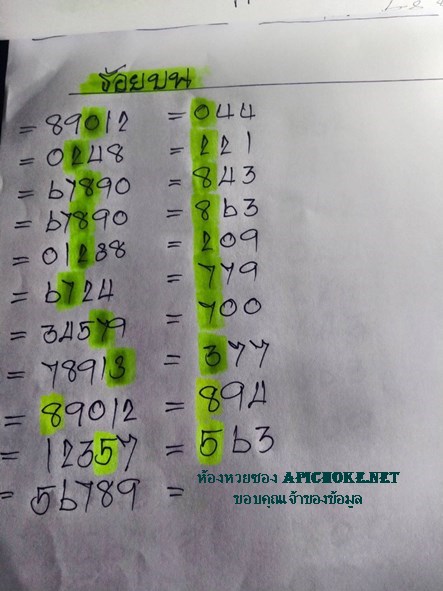 ร้อยบน
= 89012 = 044
= 0248 = 221
= 67890 = 843
= 67890 = 863
= 01238 = 209
= 6724 = 779
= 34579 = 700
= 78913 = 377
= 89012 = 894
= 12357 = 563
= 56789 =
ห้องหวยซอง APICHOKE.NET
ขอบคุณเจ้าของข้อมูล